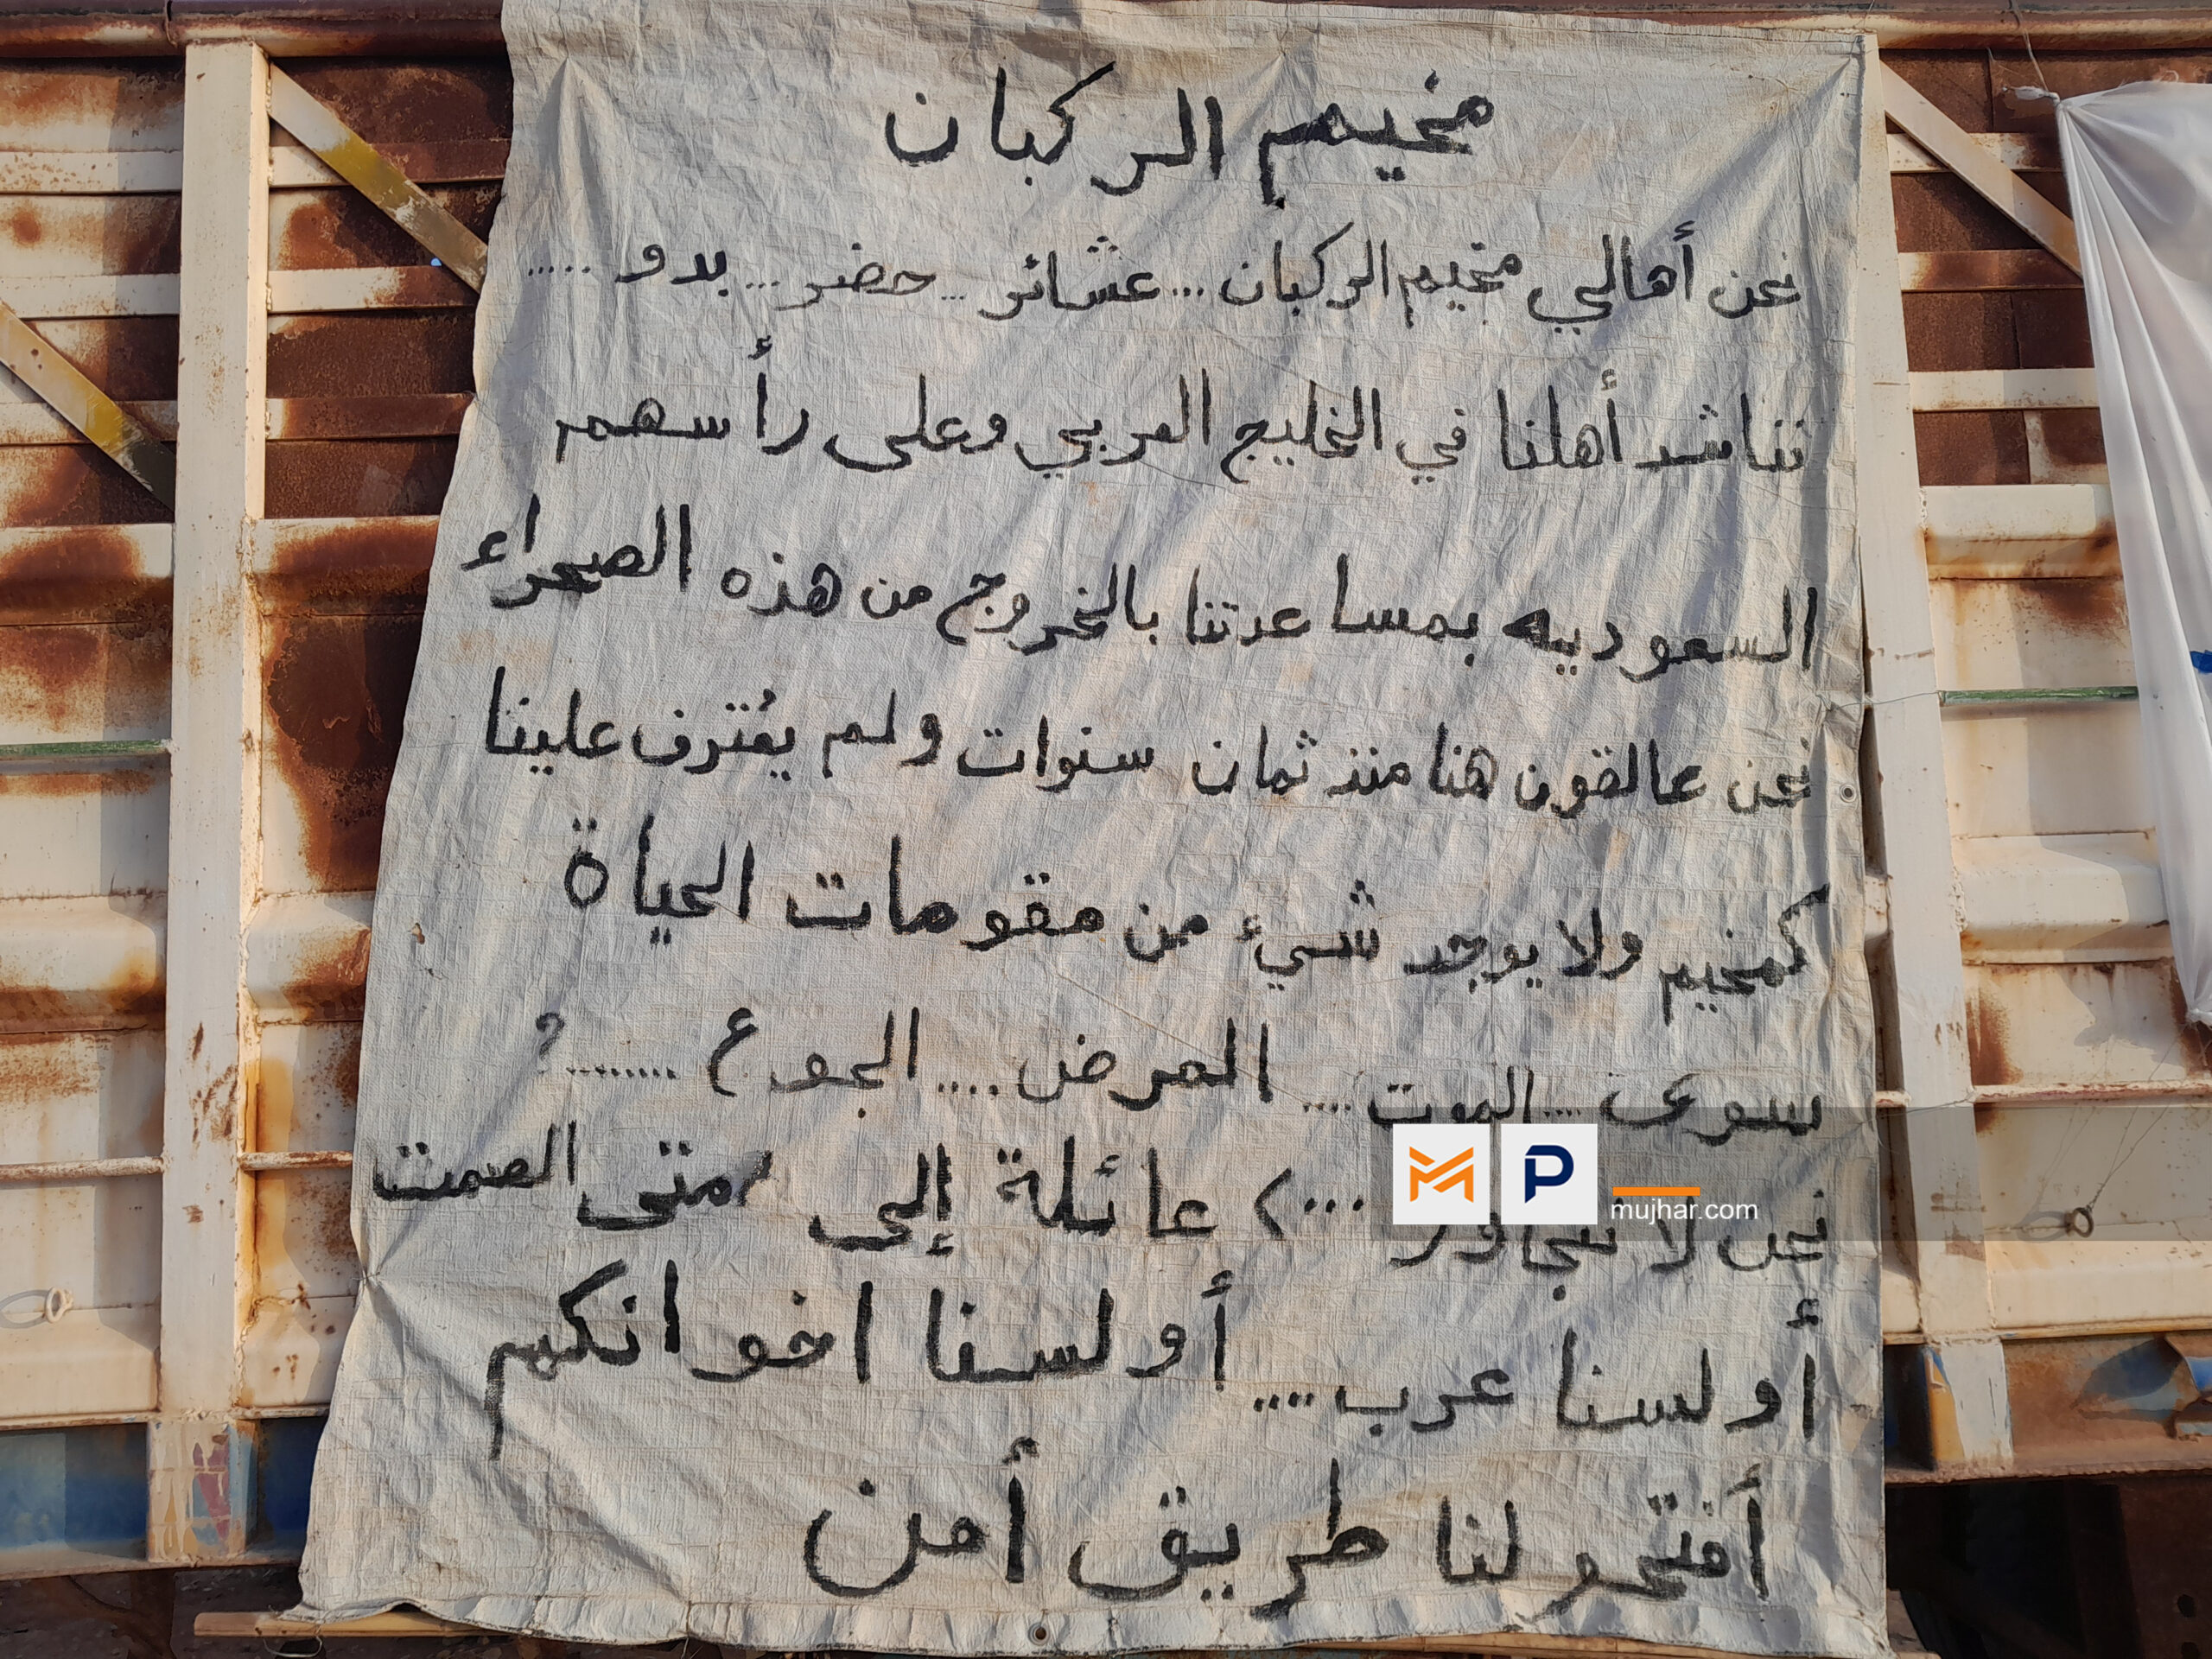 مخيم الركبان
نحن أهالي مخيم الركبان ... عشائر ... حضر ... بدو .....
نناشد أهلنا في الخليج العربي وعلى رأسهم
السعوديه بمساعدتنا بالخروج من هذه الصحراء
نحن عالقون هنا منذ ثمان سنوات ولم يُعترف علينا
كمخيم ولا يوجد شيء من مقومات الحياة
سوى .... الموت .... المرض .... الجوع ........ ?
نحن لا نتجاوز ٠٠٠٧ عائلة إلى متى الصمت
أولسنا عرب .... أولسنا اخوانكم
أفتحو لنا طريق أمن
MP
mujhar.com